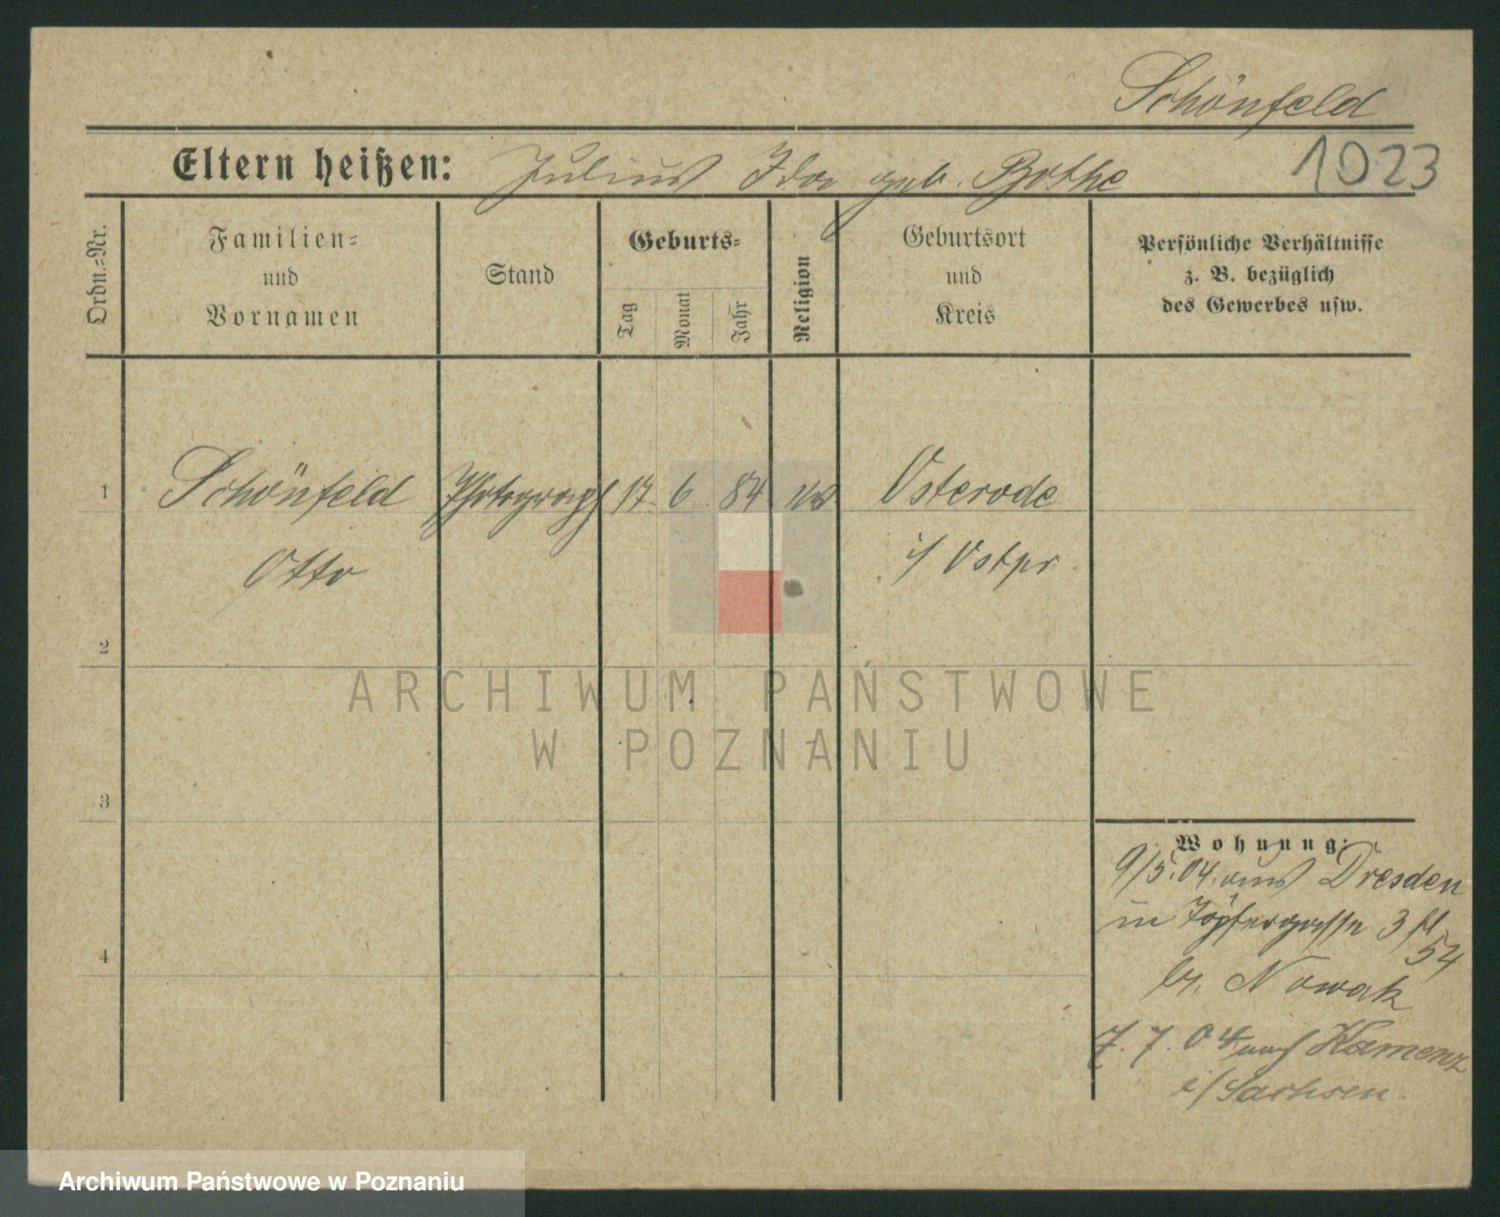 Schönfeld
Eltern heißen: Julius Ida geb. Bothe 1023
Ordn.=Nr.
Familien=
und
Vornamen
Stand
Geburts=
Tag
Monat
Jahr
Religion
Geburtsort
und
Kreis
Persönliche Verhältnisse
z. B. bezüglich
des Gewerbes usw.
1 Schönfeld Photograph 17. 6. 84 Osterode
Otto i/ Ostpr
2
3
4
Wohnung:
9/5.04. aus Dresden
in Töpfergasse 3
54
br. Nowak
7. 7. 04 nach Kamenz
i/Sachsen.
ARCHIWUM PAŃSTWOWE
W POZNANIU
Archiwum Państwowe w Poznaniu